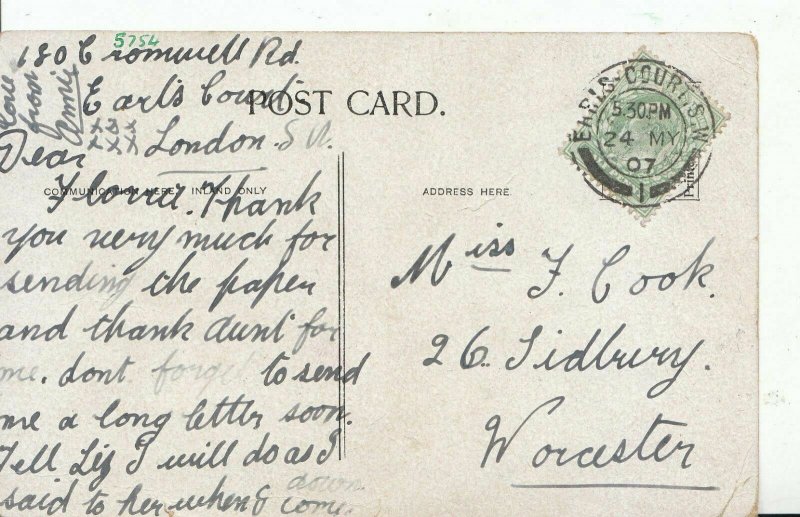 5754
180 Cromwell Rd.
Earl's Court
London. S W.
Love
from
Annie
xxx
xxx
POST CARD.
COMMUNICATION HERE, INLAND ONLY
ADDRESS HERE.
Dear
Florrie. Thank
you very much for
sending the paper
and thank Aunt for
me. dont forget to send
me a long letter soon.
Tell Liz I will do as I
said to her when I come
down
EARLS-COURT.S.W
5.30.PM
24 MY
07
1
Miss F. Cook.
26. Sidbury.
Worcester